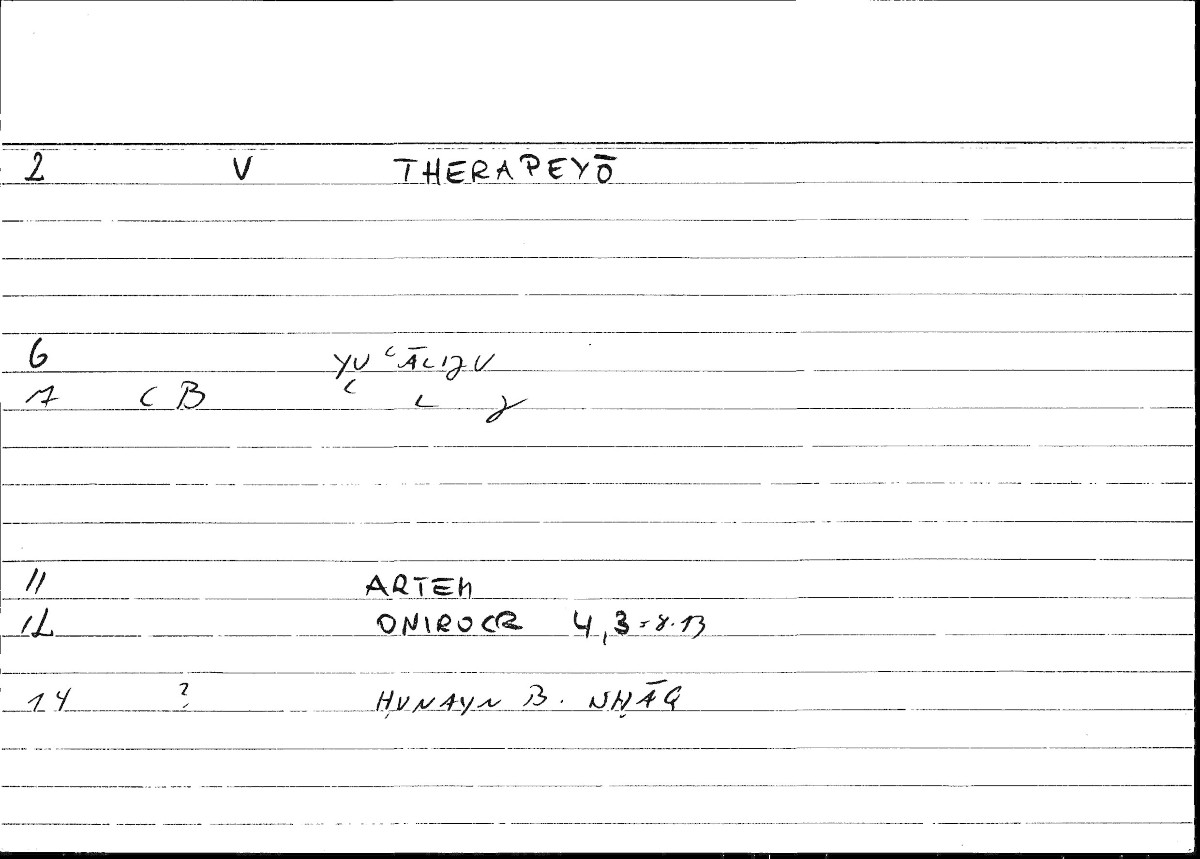 2 V THERAPEYŌ
6 YU ʿĀLIǦU
7 C B C L ǧ
11 ARTEM
12 ONIROCR 4,3 = 8.13
14 ? ḤUNAYN B. ISḤĀQ